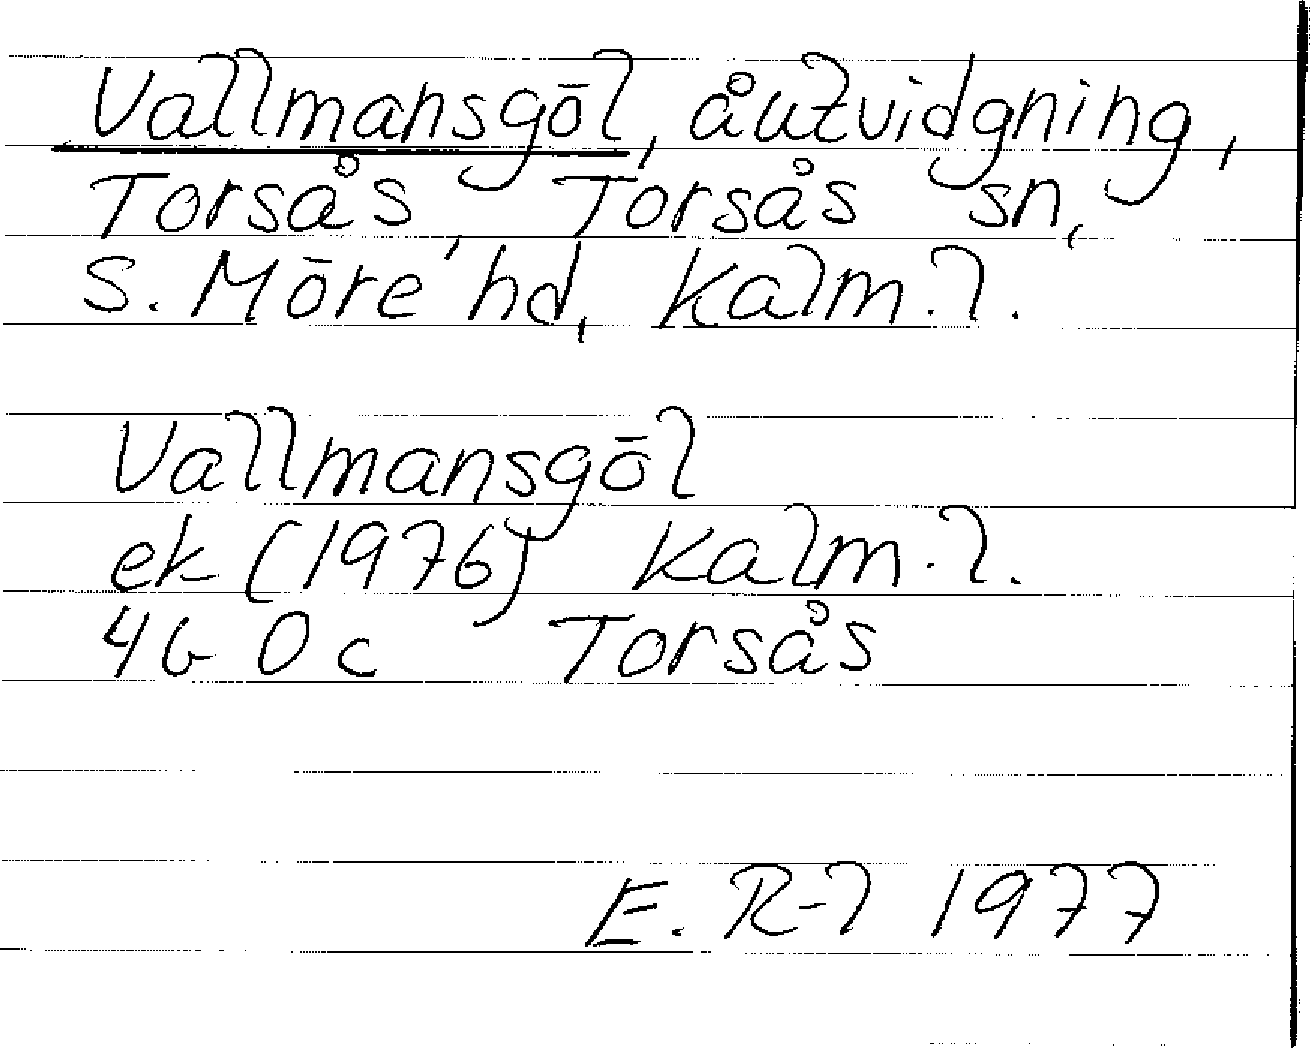 Vallmansgöl, åutvidgning,
Torsås, Torsås sn,
S. Möre hd, Kalm. l.
Vallmansgöl
ek (1976) Kalm. l.
4G 0c Torsås
E. R-l 1977